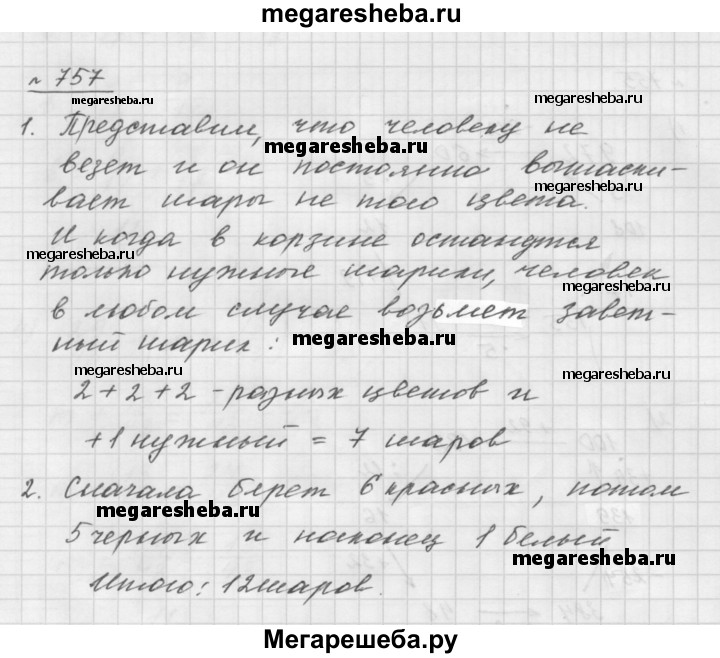 megaresheba.ru
№ 757
megaresheba.ru
1. Представим, что человеку не
megaresheba.ru
megaresheba.ru
везет и он постоянно вытаски-
megaresheba.ru
вает шары не того цвета.
И когда в корзине останутся
megaresheba.ru
megaresheba.ru
только нужные шарики, человек
megaresheba.ru
в любом случае возьмет завет-
ный шарик:
megaresheba.ru
2 + 2 + 2 - разных цветов и
megaresheba.ru
+ 1 нужный = 7 шаров
megaresheba.ru
2. Сначала берет 6 красных, потом
megaresheba.ru
5 черных и наконец 1 белый
megaresheba.ru
Итого: 12 шаров.
megaresheba.ru
Мегарешеба.ру